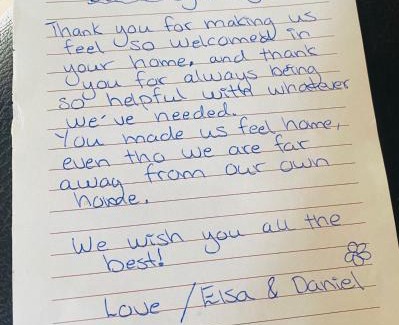 Thank you for making us
feel so welcomed in
your home, and thank
you for always being
so helpful with whatever
we've needed.
You made us feel home,
even tho we are far
away from our own
home.
We wish you all the
best!
Love / Elsa & Daniel